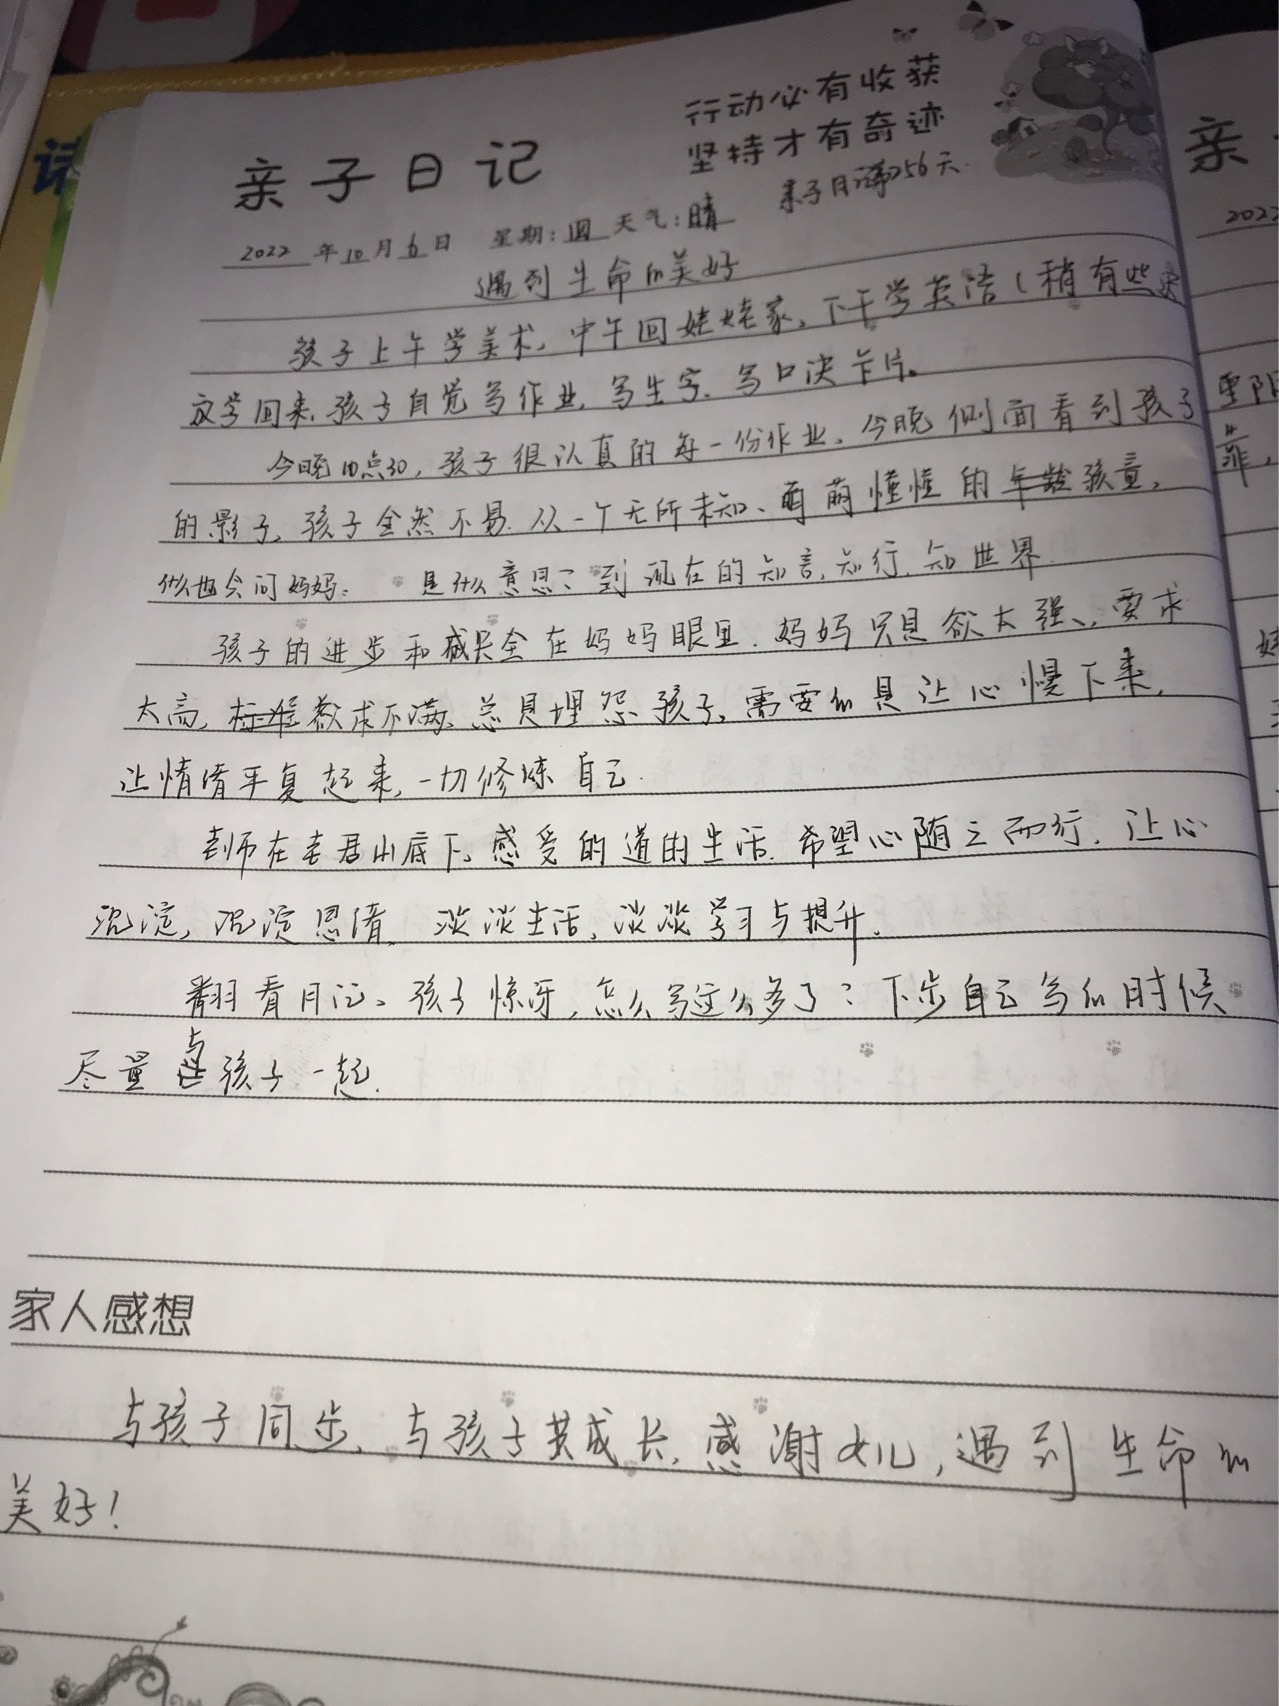 行动必有收获
坚持才有奇迹
亲子日记
亲子日记第256天.
2022年10月6日 星期:四 天气:晴
遇到生命的美好
孩子上午学美术,中午回姥姥家,下午学英语(稍有些
放学回来,孩子自觉写作业,写生字,写口决卡片。
今晚10点30,孩子很认真的每一份作业,今晚侧面看到孩子
的影子,孩子全然不易.从一个无所未知、萌萌懂懂的年龄孩童,
似也会问妈妈: 是什么意思?到现在的知言,知行,知世界.
孩子的进步和成长全在妈妈眼里.妈妈只是欲太强、要求
太高,标准 不满,总是埋怨孩子,需要的是让心慢下来,
让情绪平复起来,一切修炼自己.
老师在老君山底下,感受的道的生活.希望心随之而行,让心
沉淀,沉淀思绪,淡淡生活,淡淡学习与提升.
翻看日记,孩子惊呀,怎么写这么多了?下步自己写的时候
尽量与孩子一起.
家人感想
与孩子同步,与孩子共成长,感谢女儿,遇到生命的
美好!
亲
2022
重阳
靠,